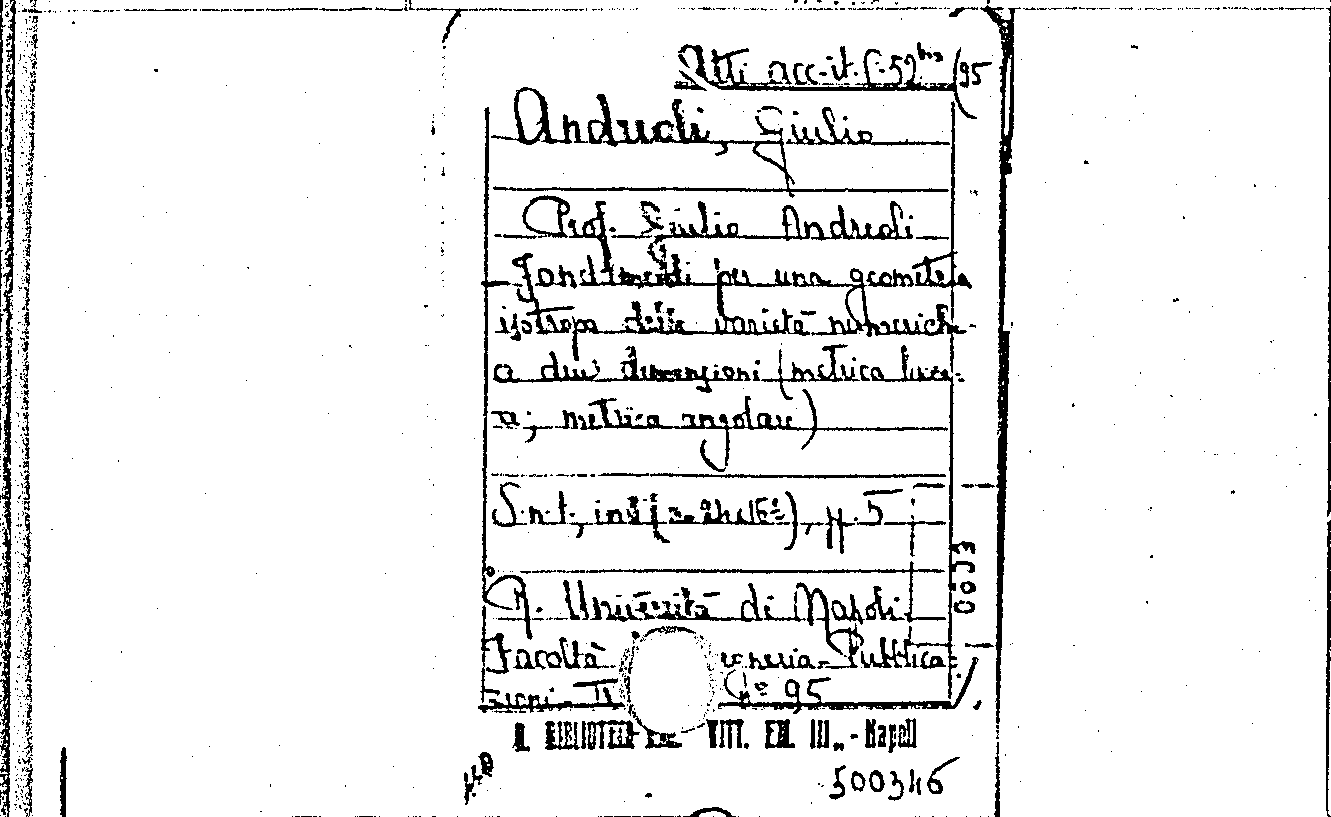 Atti acc. it. C. 52 bis (95
Andreoli, Giulio
Prof. Giulio Andreoli
Fondamenti per una geometria
isotropa delle varietà numeriche
a due dimensioni (metrica linea-
re; metrica angolare)
S.n.t., in 8°, p. 5
R. Università di Napoli.
Facoltà egneria - Pubblica-
zioni - II n° 95
R. BIBLIOTECA VITT. EM. III„ - Napoli
500346